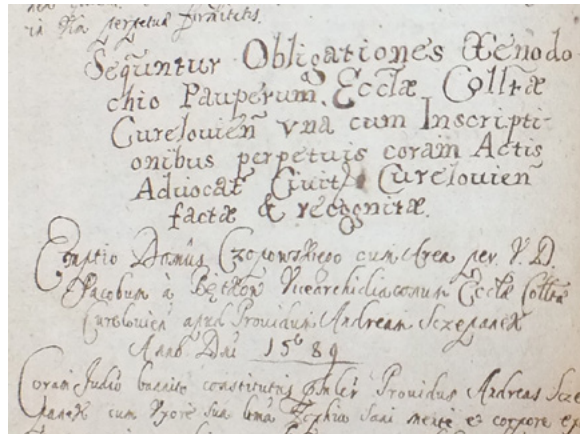 in rei perpetua firmitatis.
Sequntur Obligationes Xenodo
chio Pauperum, Eccłæ Collt̃æ
Curelovien̄ vna cum Inscripti-
onibus perpetuis coram Actis
Aduocat Ciuit Cureloüien̄
factæ & recognitæ.
Emptio Domus Czopowskiego cum Area per V. D.
Jacobum à Vicearchidiaconum Eccłæ Collt̃æ
Cureloüien̄ apud Providum Andream Sczepanek
Anno Dni 1589
Coram Judio bannito constitutus Providus Andreas Scze
panek cum Vxore sua Zophia sani mente et corpore